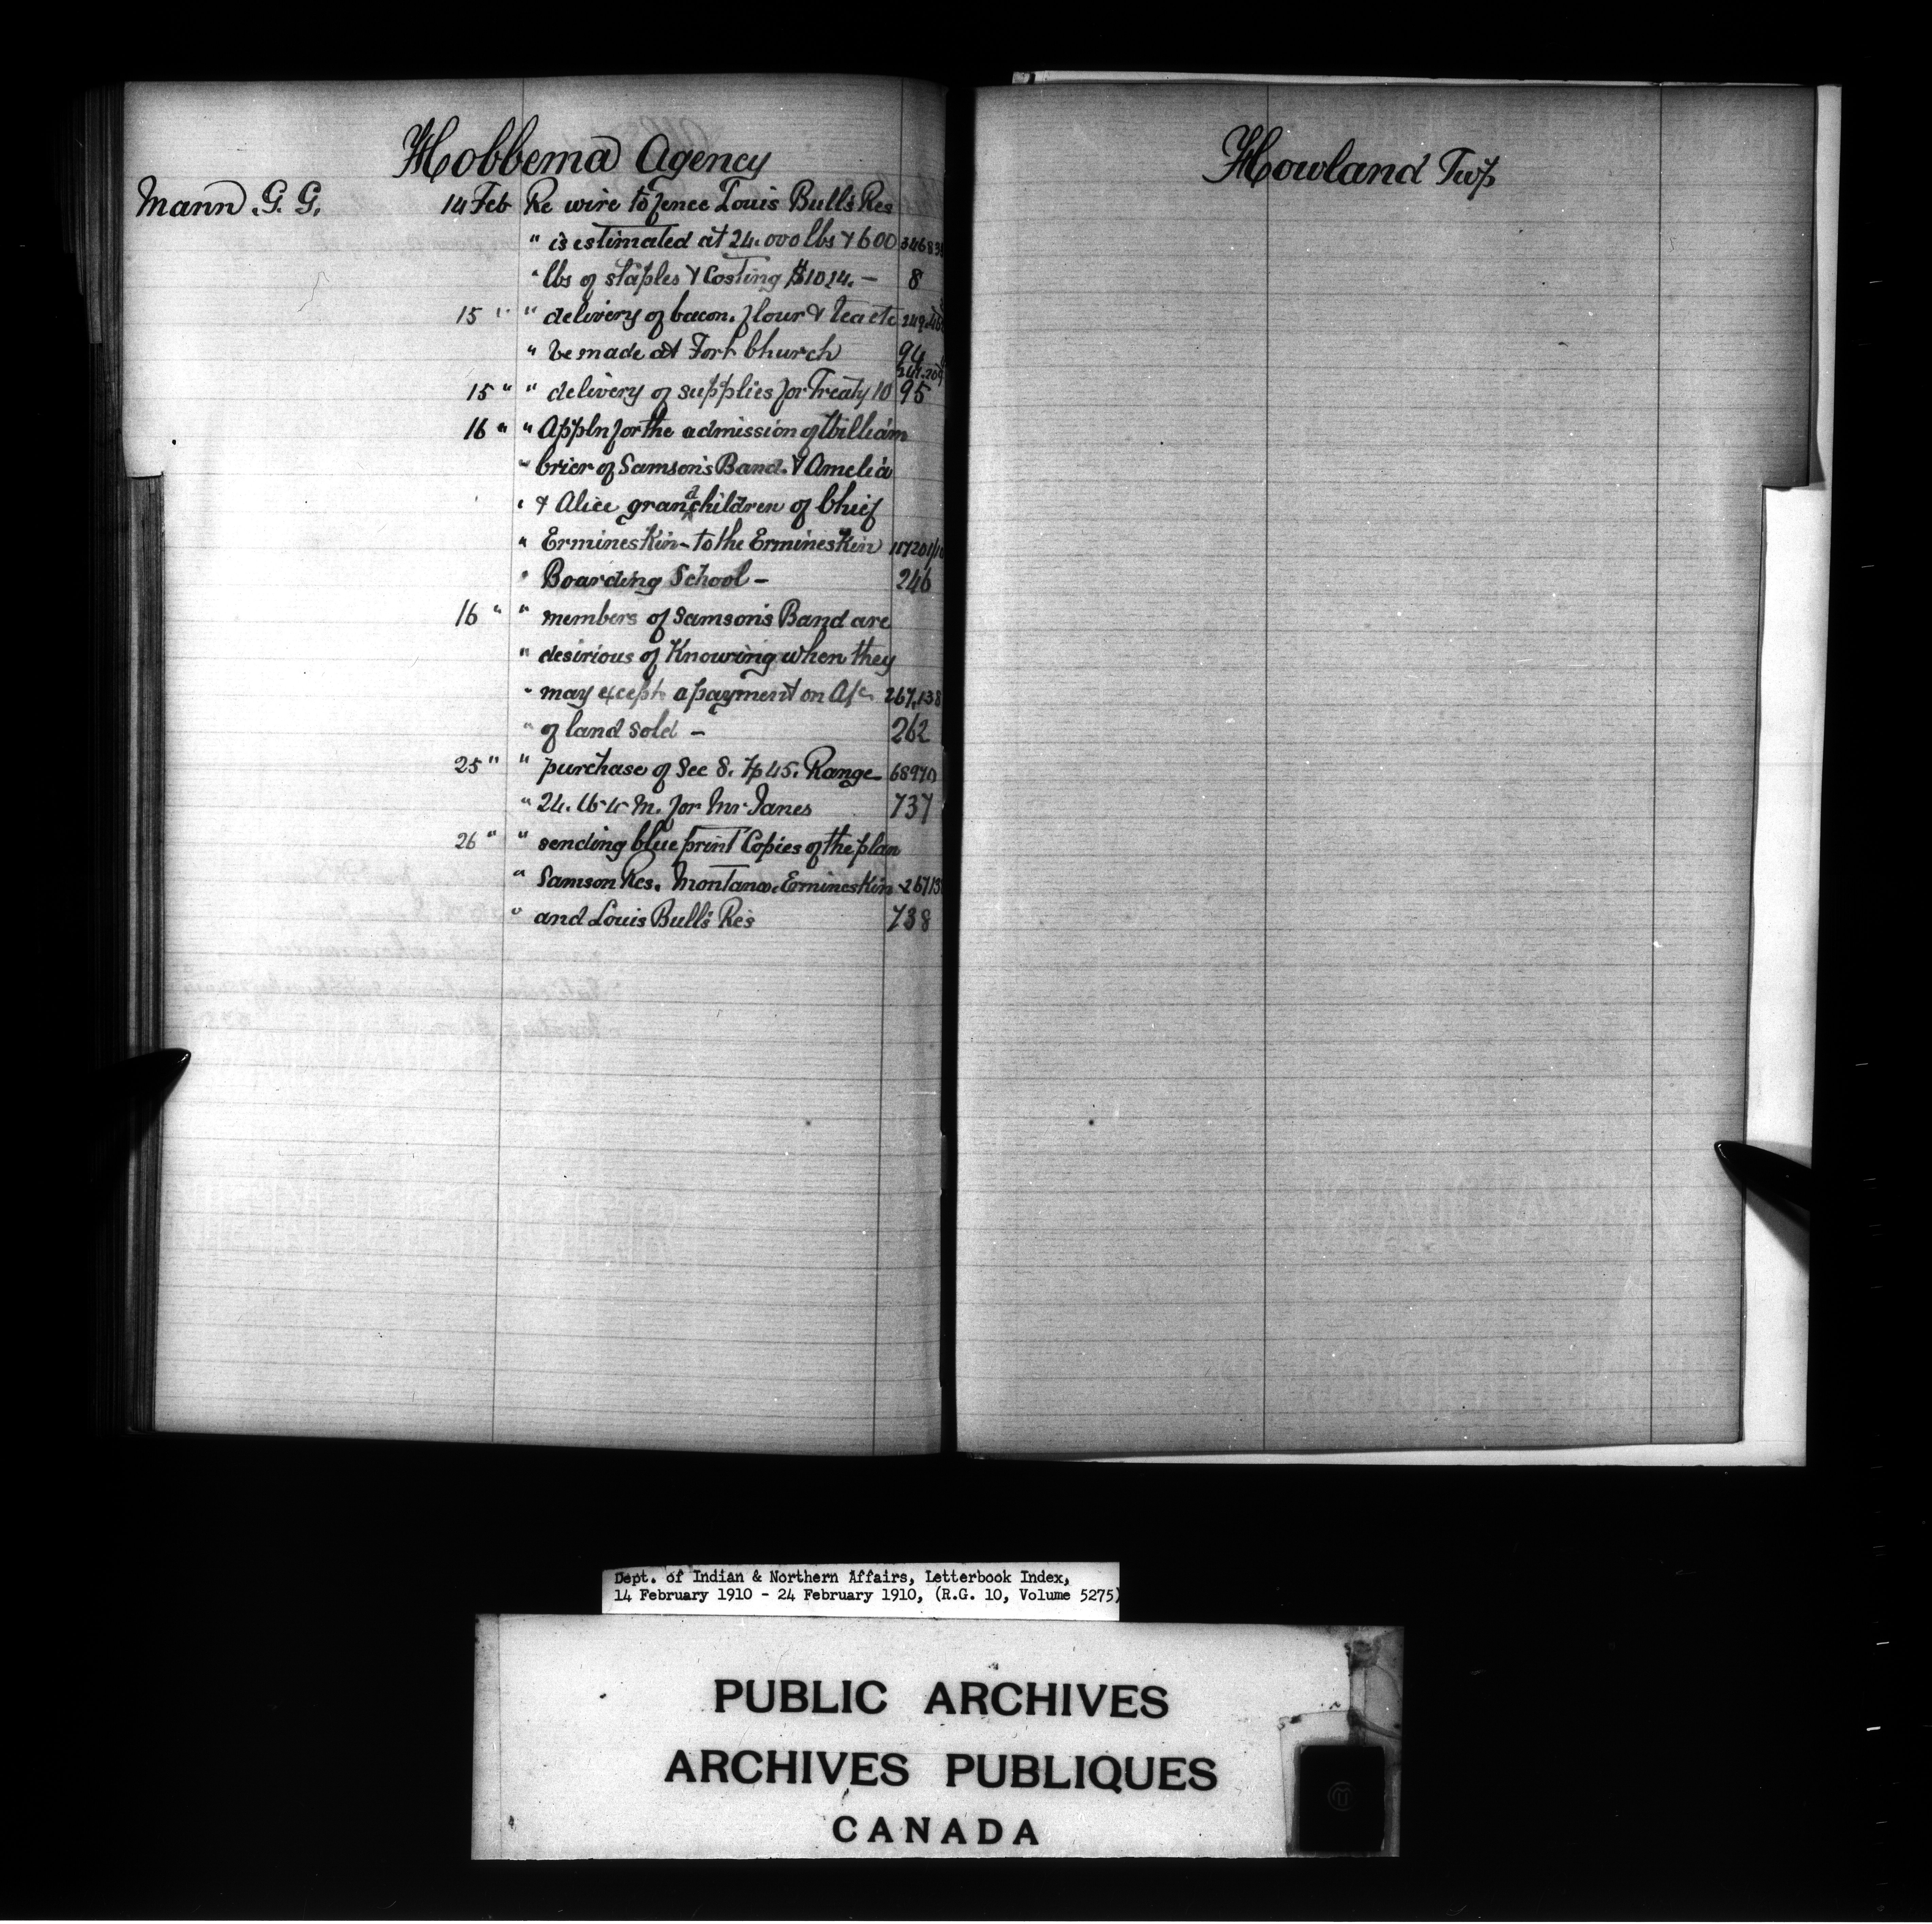 Hobbema Agency
Mann G. G. 14 Feb Re wire to fence Louis Bull's Res
" is estimated at 24.000 lbs & 600
" lbs of staples & Costing $1014. — 8
15 " " delivery of bacon. flour & tea etc
" be made at Fort Church 94
15 " " delivery of supplies for Treaty 10 95
16 " " Appln for the admission of William
" Crier of Samson's Band. & Amelia
" & Alice grandchildren of Chief
" Ermineskin - to the Ermineskin
" Boarding School — 246
16 " " members of Samson's Band are
" desirious of Knowing when they
" may except a payment on A/c 267,138
" of land sold — 262
25 " " purchase of Sec 8. Tp 45. Range
" 24. W 4 M. for Mr Janes 737
26 " " sending blue print Copies of the plan
" Samson Res. Montana. Ermineskin
" and Louis Bull's Res 738
Howland Twp
Dept. of Indian & Northern Affairs, Letterbook Index,
14 February 1910 - 24 February 1910, (R.G. 10, Volume 5275)
PUBLIC ARCHIVES
ARCHIVES PUBLIQUES
CANADA